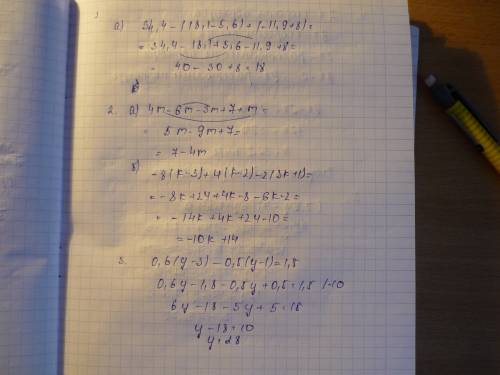 1
а) 34,4-(18,1-5,6)+(-11,9+8)=
= 34,4-18,1+5,6-11,9+8=
= 40-30+8=18
2. а) 4m-6m-3m+7+m=
= 5m-9m+7=
= 7-4m
б)
-8(k-3)+4(k-2)-2(3k+1)=
= -8k+24+4k-8-6k-2=
= -14k+4k+24-10=
= -10k+14
3. 0,6(y-3)-0,5(y-1)=1,5
0,6y-1,8-0,5y+0,5=1,5 |·10
6y-18-5y+5=15
y-18=10
y=28